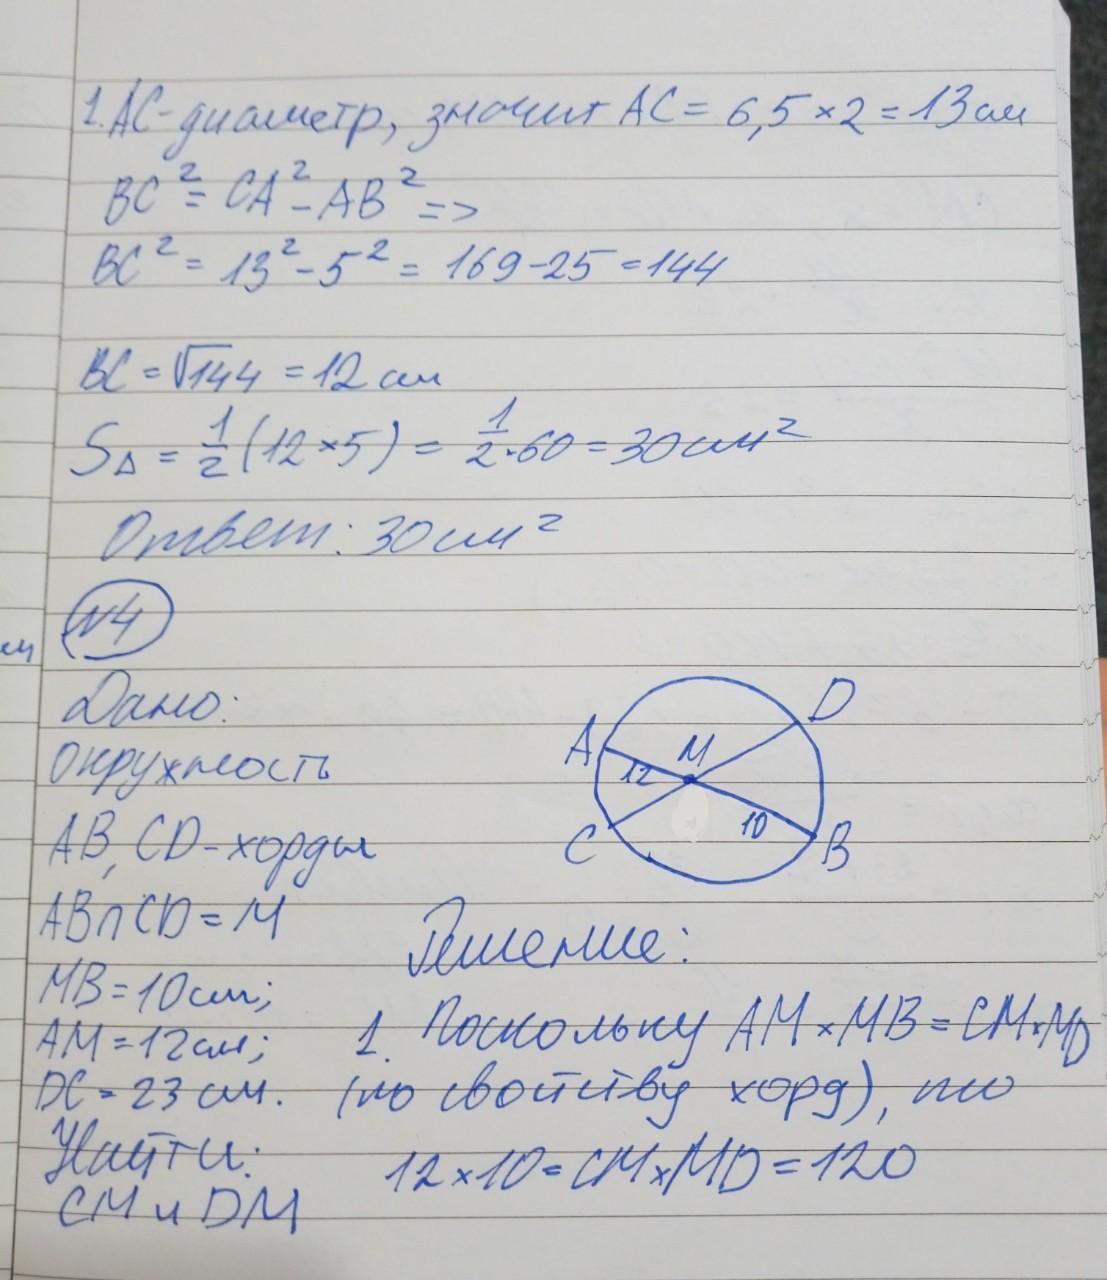 1. AC-диаметр, значит AC = 6,5 × 2 = 13 см
BC² = CA² - AB² =>
BC² = 13² - 5² = 169 - 25 = 144
BC = √144 = 12 см
S△ = 1/2 (12 × 5) = 1/2 · 60 = 30 см²
Ответ: 30 см²
№4
Дано:
окружность
AB, CD - хорды
AB ∩ CD = M
MB = 10 см;
AM = 12 см;
DC = 23 см.
Найти:
CM и DM
A
D
M
12
10
C
B
Решение:
1. Поскольку AM × MB = CM × MD
(по свойству хорд), то
12 × 10 = CM × MD = 120